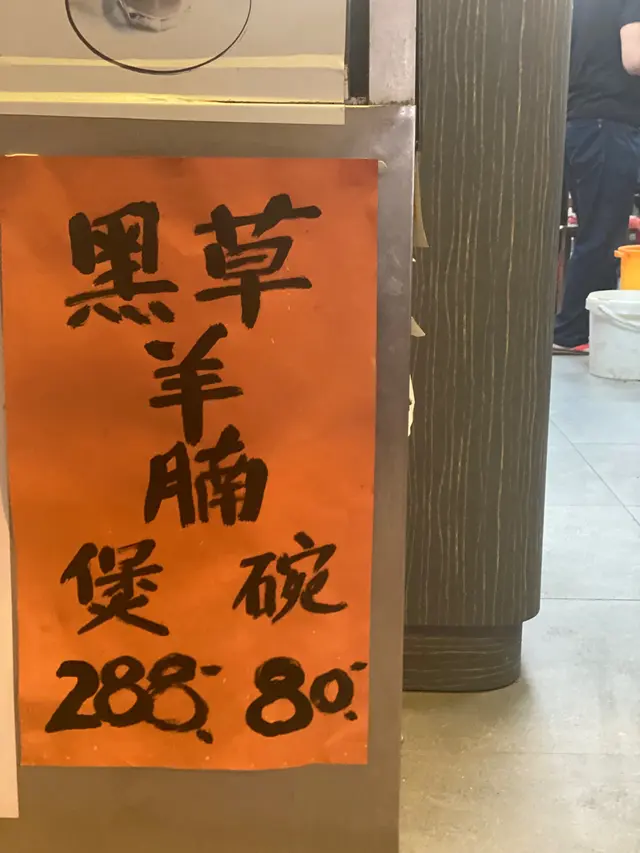 黑草
羊
腩
煲 碗
288.- 80.-